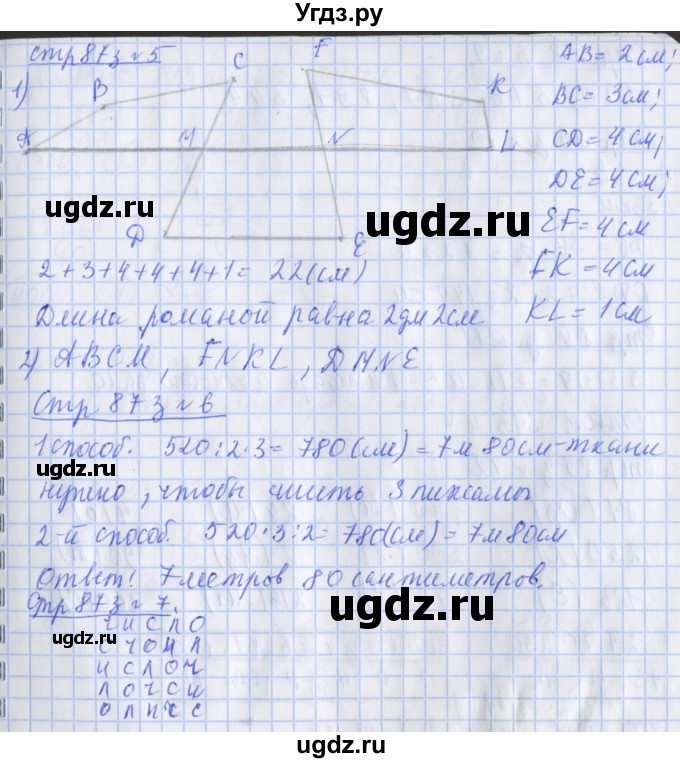 Угдз.ру
стр 87 з № 5
1)
A B C F K M N L D E
AB = 2 см;
BC = 3 см;
CD = 4 см;
DE = 4 см;
EF = 4 см
FK = 4 см
KL = 1 см
ugdz.ru
ugdz.ru
2+3+4+4+4+4+1= 22(см)
Длина ломаной равна 2дм 2см
2) ABCM, FNKL, DMNE
Стр 87 з № 6
1 способ. 520:2·3= 780(см) = 7м 80см-ткани
нужно, чтобы сшить 3 пижамы
2-й способ. 520·3:2= 780(см)= 7м 80см
Ответ: 7метров 80 сантиметров.
ugdz.ru
Стр 87 з № 7.
ugdz.ru
ч и с л о
с ч о и л
и с л о ч
л о ч с и
о л и ч с
ugdz.ru